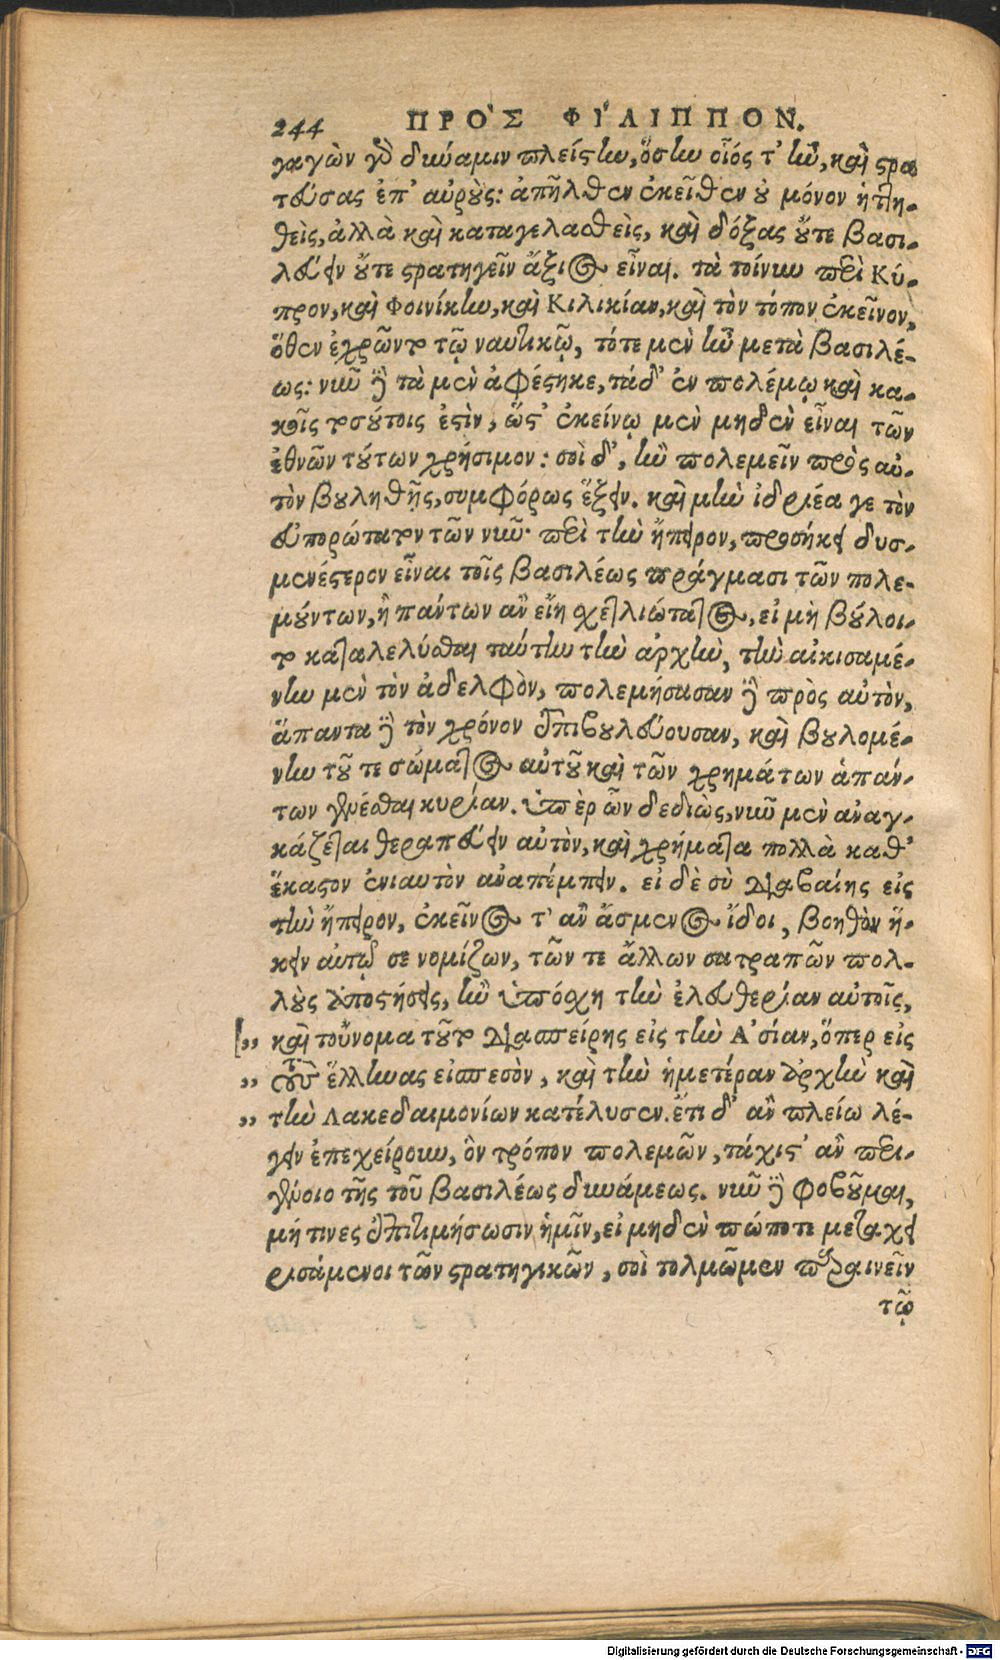 244 ΠΡΟ῾Σ ΦΙ´ΛΙΠΠΟΝ.
γαγὼν γὸ δύναμιν πλείστην, ὅσην οἷός τ' ἦν, καὶ στρα
τεύσας ἐπ' αὐτοὺς: ἀπῆλθεν ἐκεῖθεν οὐ μόνον ἡττη-
θεὶς, ἀλλὰ καὶ καταγελασθεὶς, καὶ δόξας οὔτε βασι-
λεύειν οὔτε στρατηγεῖν ἄξιος εἶναι. τὰ τοίνυν περὶ Κύ-
προν, καὶ Φοινίκην, καὶ Κιλικίαν, καὶ τὸν τόπον ἐκεῖνον,
ὅθεν ἐχρῶντο τῷ ναυτικῷ, τότε μὲν ἦν μετὰ βασιλέ-
ως: νῦν δὲ τὰ μὲν ἀφέστηκε, τὰ δ' ἐν πολέμῳ καὶ κα-
κοῖς τοσούτοις ἐστὶν, ὥστ' ἐκείνῳ μὲν μηδὲν εἶναι τῶν
ἐθνῶν τούτων χρήσιμον: σοὶ δ', ἢν πολεμεῖν πρὸς αὐ-
τὸν βουληθῇς, συμφόρως ἕξειν. καὶ μὴν ἰδριέα γε τὸν
εὐπορώτατον τῶν νῦν περὶ τὴν ἤπειρον, προσήκει δυσ-
μενέστερον εἶναι τοῖς βασιλέως πράγμασι τῶν πολε-
μούντων, ἢ πάντων ἂν εἴη σχετλιώτατος, εἰ μὴ βούλοι-
το καταλελύσθαι ταύτην τὴν ἀρχὴν, τὴν αἰκισαμέ-
νην μὲν τὸν ἀδελφὸν, πολεμήσασαν δὲ πρὸς αὐτὸν,
ἅπαντα δὲ τὸν χρόνον ἐπιβουλεύουσαν, καὶ βουλομέ-
νην τοῦ τε σώματος αὐτοῦ καὶ τῶν χρημάτων ἁπάν-
των γενέσθαι κυρίαν. ὑπὲρ ὧν δεδιὼς, νῦν μὲν ἀναγ-
κάζεται θεραπεύειν αὐτὸν, καὶ χρήματα πολλὰ καθ'
ἕκαστον ἐνιαυτὸν ἀναπέμπειν. εἰ δὲ σὺ διαβαίης εἰς
τὴν ἤπειρον, ἐκεῖνος τ' ἂν ἄσμενος ἴδοι, βοηθὸν ἥ-
κειν αὑτῷ σε νομίζων, τῶν τε ἄλλων σατραπῶν πολ-
λοὺς ἀποστήσεις, ἢν ὑπόσχῃ τὴν ἐλευθερίαν αὐτοῖς,
[„ καὶ τοὔνομα τοῦτο διασπείρῃς εἰς τὴν Ἀσίαν, ὅπερ εἰς
„ τοὺς ἕλληνας εἰσπεσὸν, καὶ τὴν ἡμετέραν ἀρχὴν καὶ
„ τὴν Λακεδαιμονίων κατέλυσεν. ἔτι δ' ἂν πλείω λέ-
γειν ἐπεχείρουν, ὃν τρόπον πολεμῶν, τάχιστ' ἂν περι-
γένοιο τῆς τοῦ βασιλέως δυνάμεως. νῦν δὲ φοβοῦμαι,
μή τινες ἐπιτιμήσωσιν ἡμῖν, εἰ μηδὲν πώποτε μεταχει
ρισάμενοι τῶν στρατηγικῶν, σοὶ τολμῶμεν παραινεῖν
τῷ
Digitalisierung gefördert durch die Deutsche Forschungsgemeinschaft - DFG